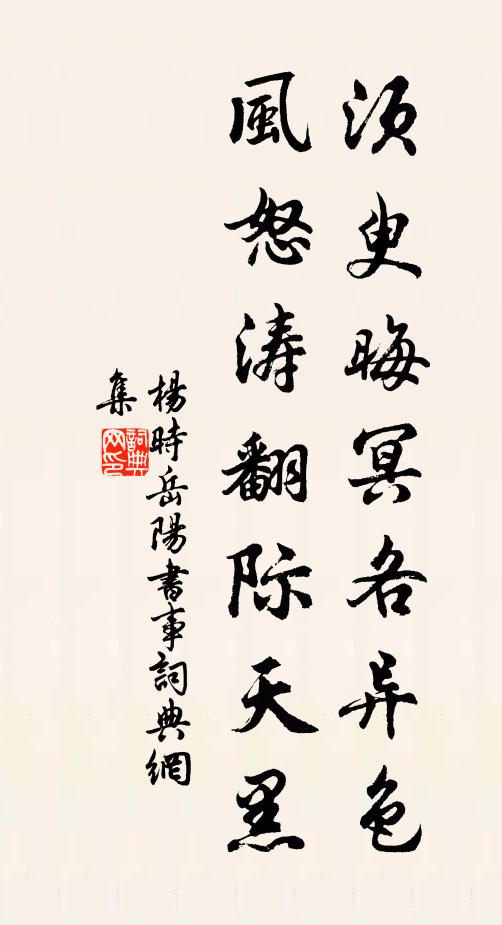 须臾晦冥各异色
風怒涛翻际天黑
楊時岳陽書事詞典網
集
詞典
网印